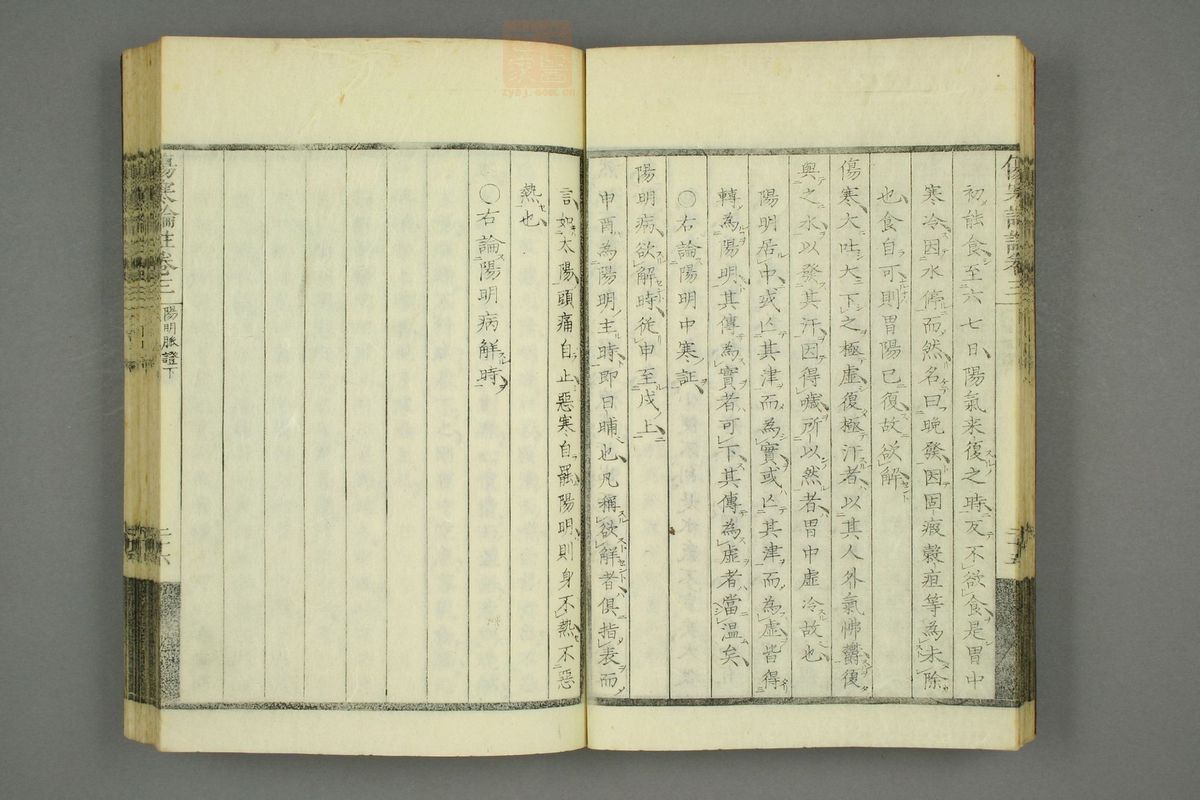 初能食至六七日陽氣来復之時反不欲食是胃中
寒冷因水停而然名曰晚發因固瘕穀疸等為未除
也食自可則胃陽已復故欲解
傷寒大吐大下之極虛復極汗者以其人外氣怫鬱復
與之水以發其汗因得噦所以然者胃中虛冷故也
陽明居中或亡其津而為實或亡其津而為虛皆得
轉為陽明其傳為實者可下其傳為虛者當溫矣
〇右論陽明中寒証
陽明病欲解時從申至戌上
申酉為陽明主時即日晡也凡稱欲解者俱指表而
言如太陽頭痛自止惡寒自罷陽明則身不熱不惡
熱也
〇右論陽明病解時
傷寒論註卷三
陽明脈證下
二十六
zysj.com.cn